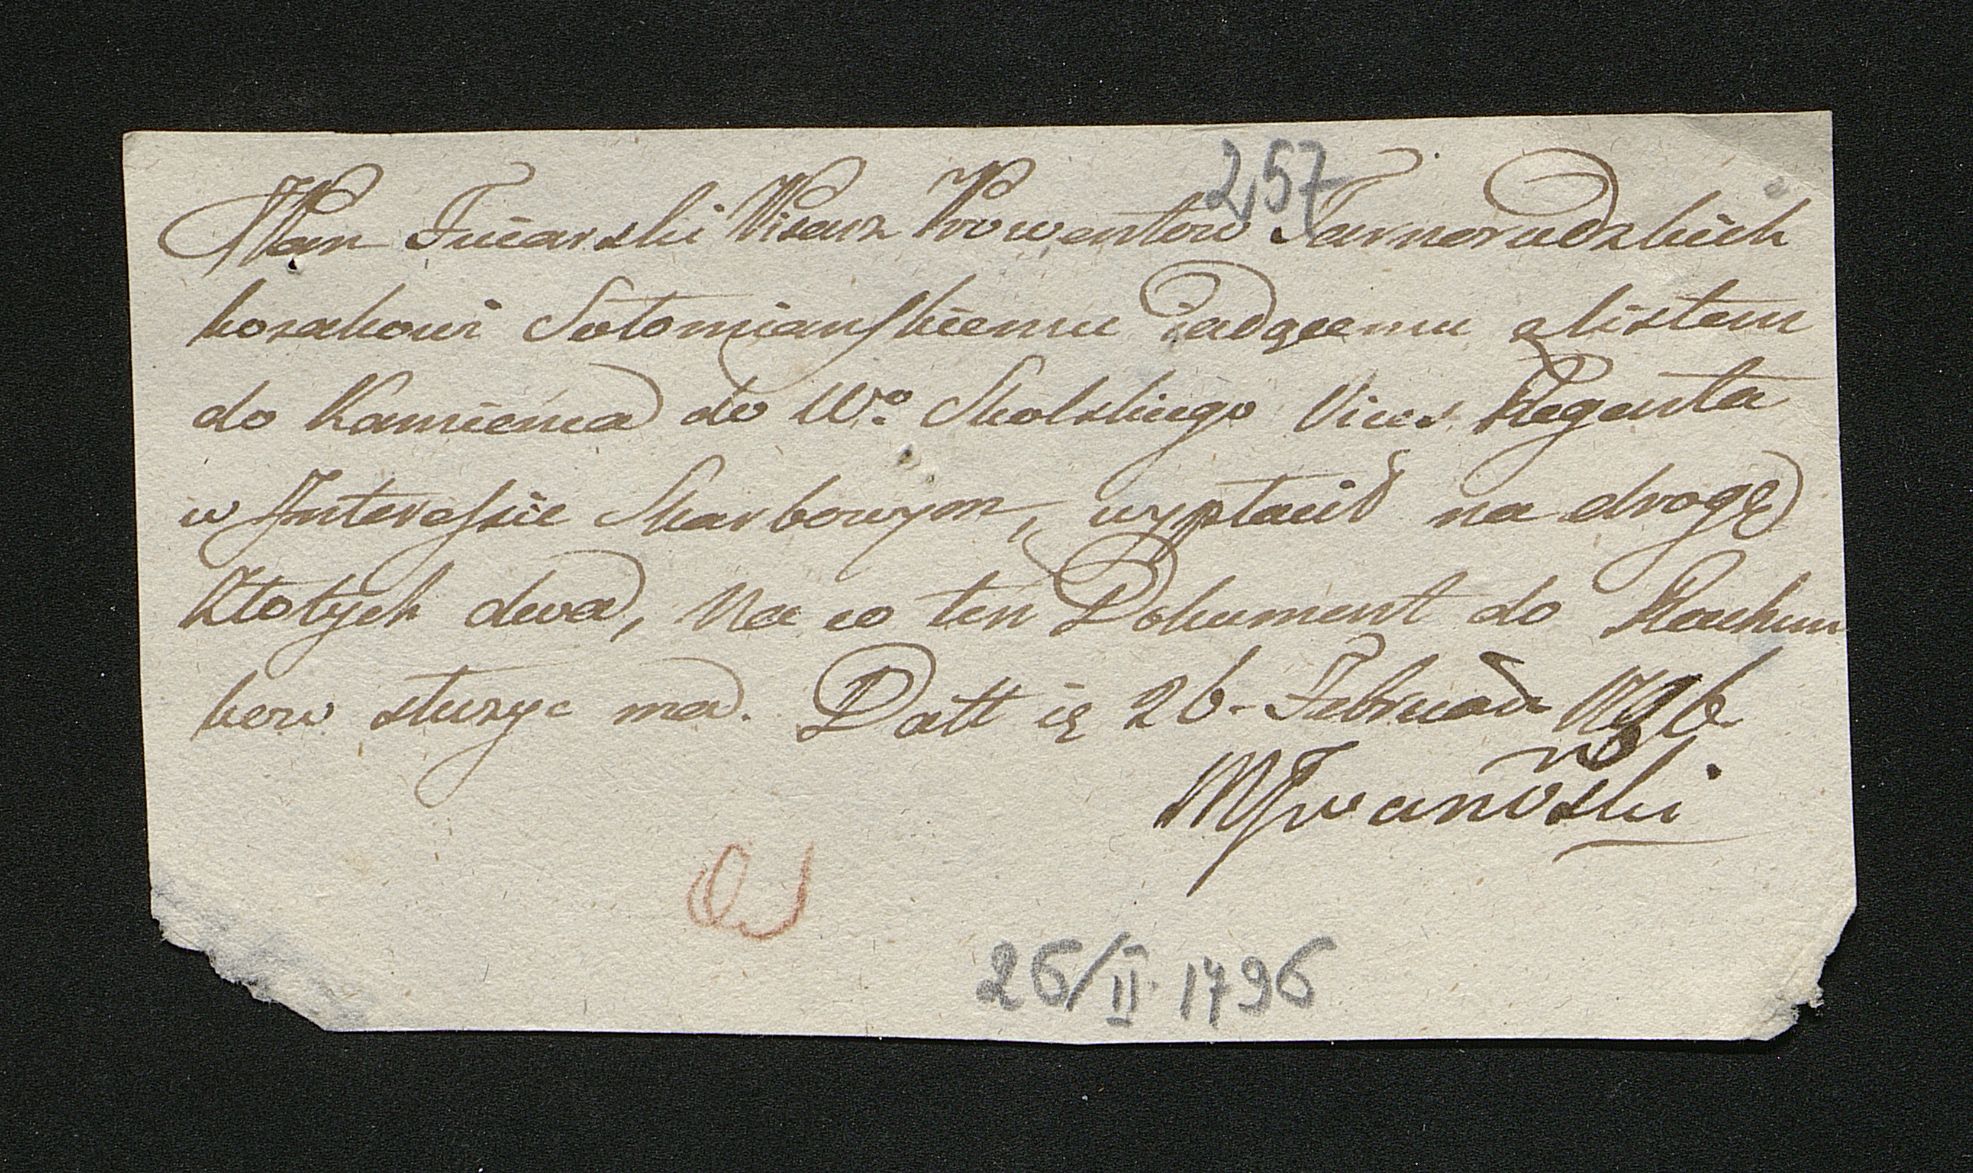 257
Pan Tucarski Pisarz Prowentow Tarnorudzkich
kozakowi Sołomianskiemu iadącemu z listem
do Kamieńca do Wo Skolskiego Vices Regenta
w Interessie Skarbowym, wypłacił na drogę
Złotych dwa, Na co ten Dokument do Rachun
kow służyc ma. Datt ię 26 Februarii 1796
MJwanowski
26/II 1796